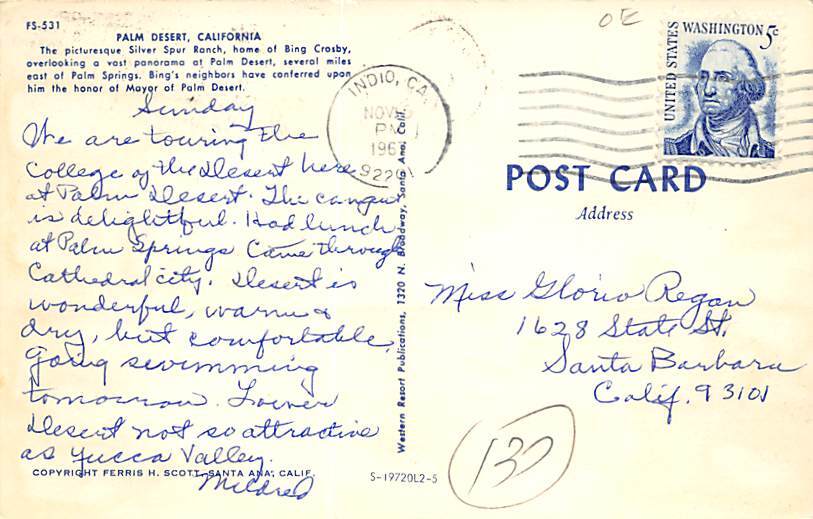 FS-531
PALM DESERT, CALIFORNIA
The picturesque Silver Spur Ranch, home of Bing Crosby,
overlooking a vast panorama at Palm Desert, several miles
east of Palm Springs. Bing's neighbors have conferred upon
him the honor of Mayor of Palm Desert.
Sunday
We are touring the
College of the Desert here
at Palm Desert. The campus
is delightful. Had lunch
at Palm Springs Came through
Cathedral city. Desert is
wonderful, warm &
dry, but comfortable.
Going swimming
tomorrow. Lower
Desert not so attractive
as Yucca Valley.
Mildred
COPYRIGHT FERRIS H. SCOTT, SANTA ANA, CALIF.
Western Resort Publications, 1320 N. Broadway, Santa Ana, Calif.
S-19720L2-5
INDIO, CA
NOV
PM
196
922
OE
UNITED STATES
WASHINGTON 5c
POST CARD
Address
Miss Gloria Regan
1628 State St.
Santa Barbara
Calif. 93101